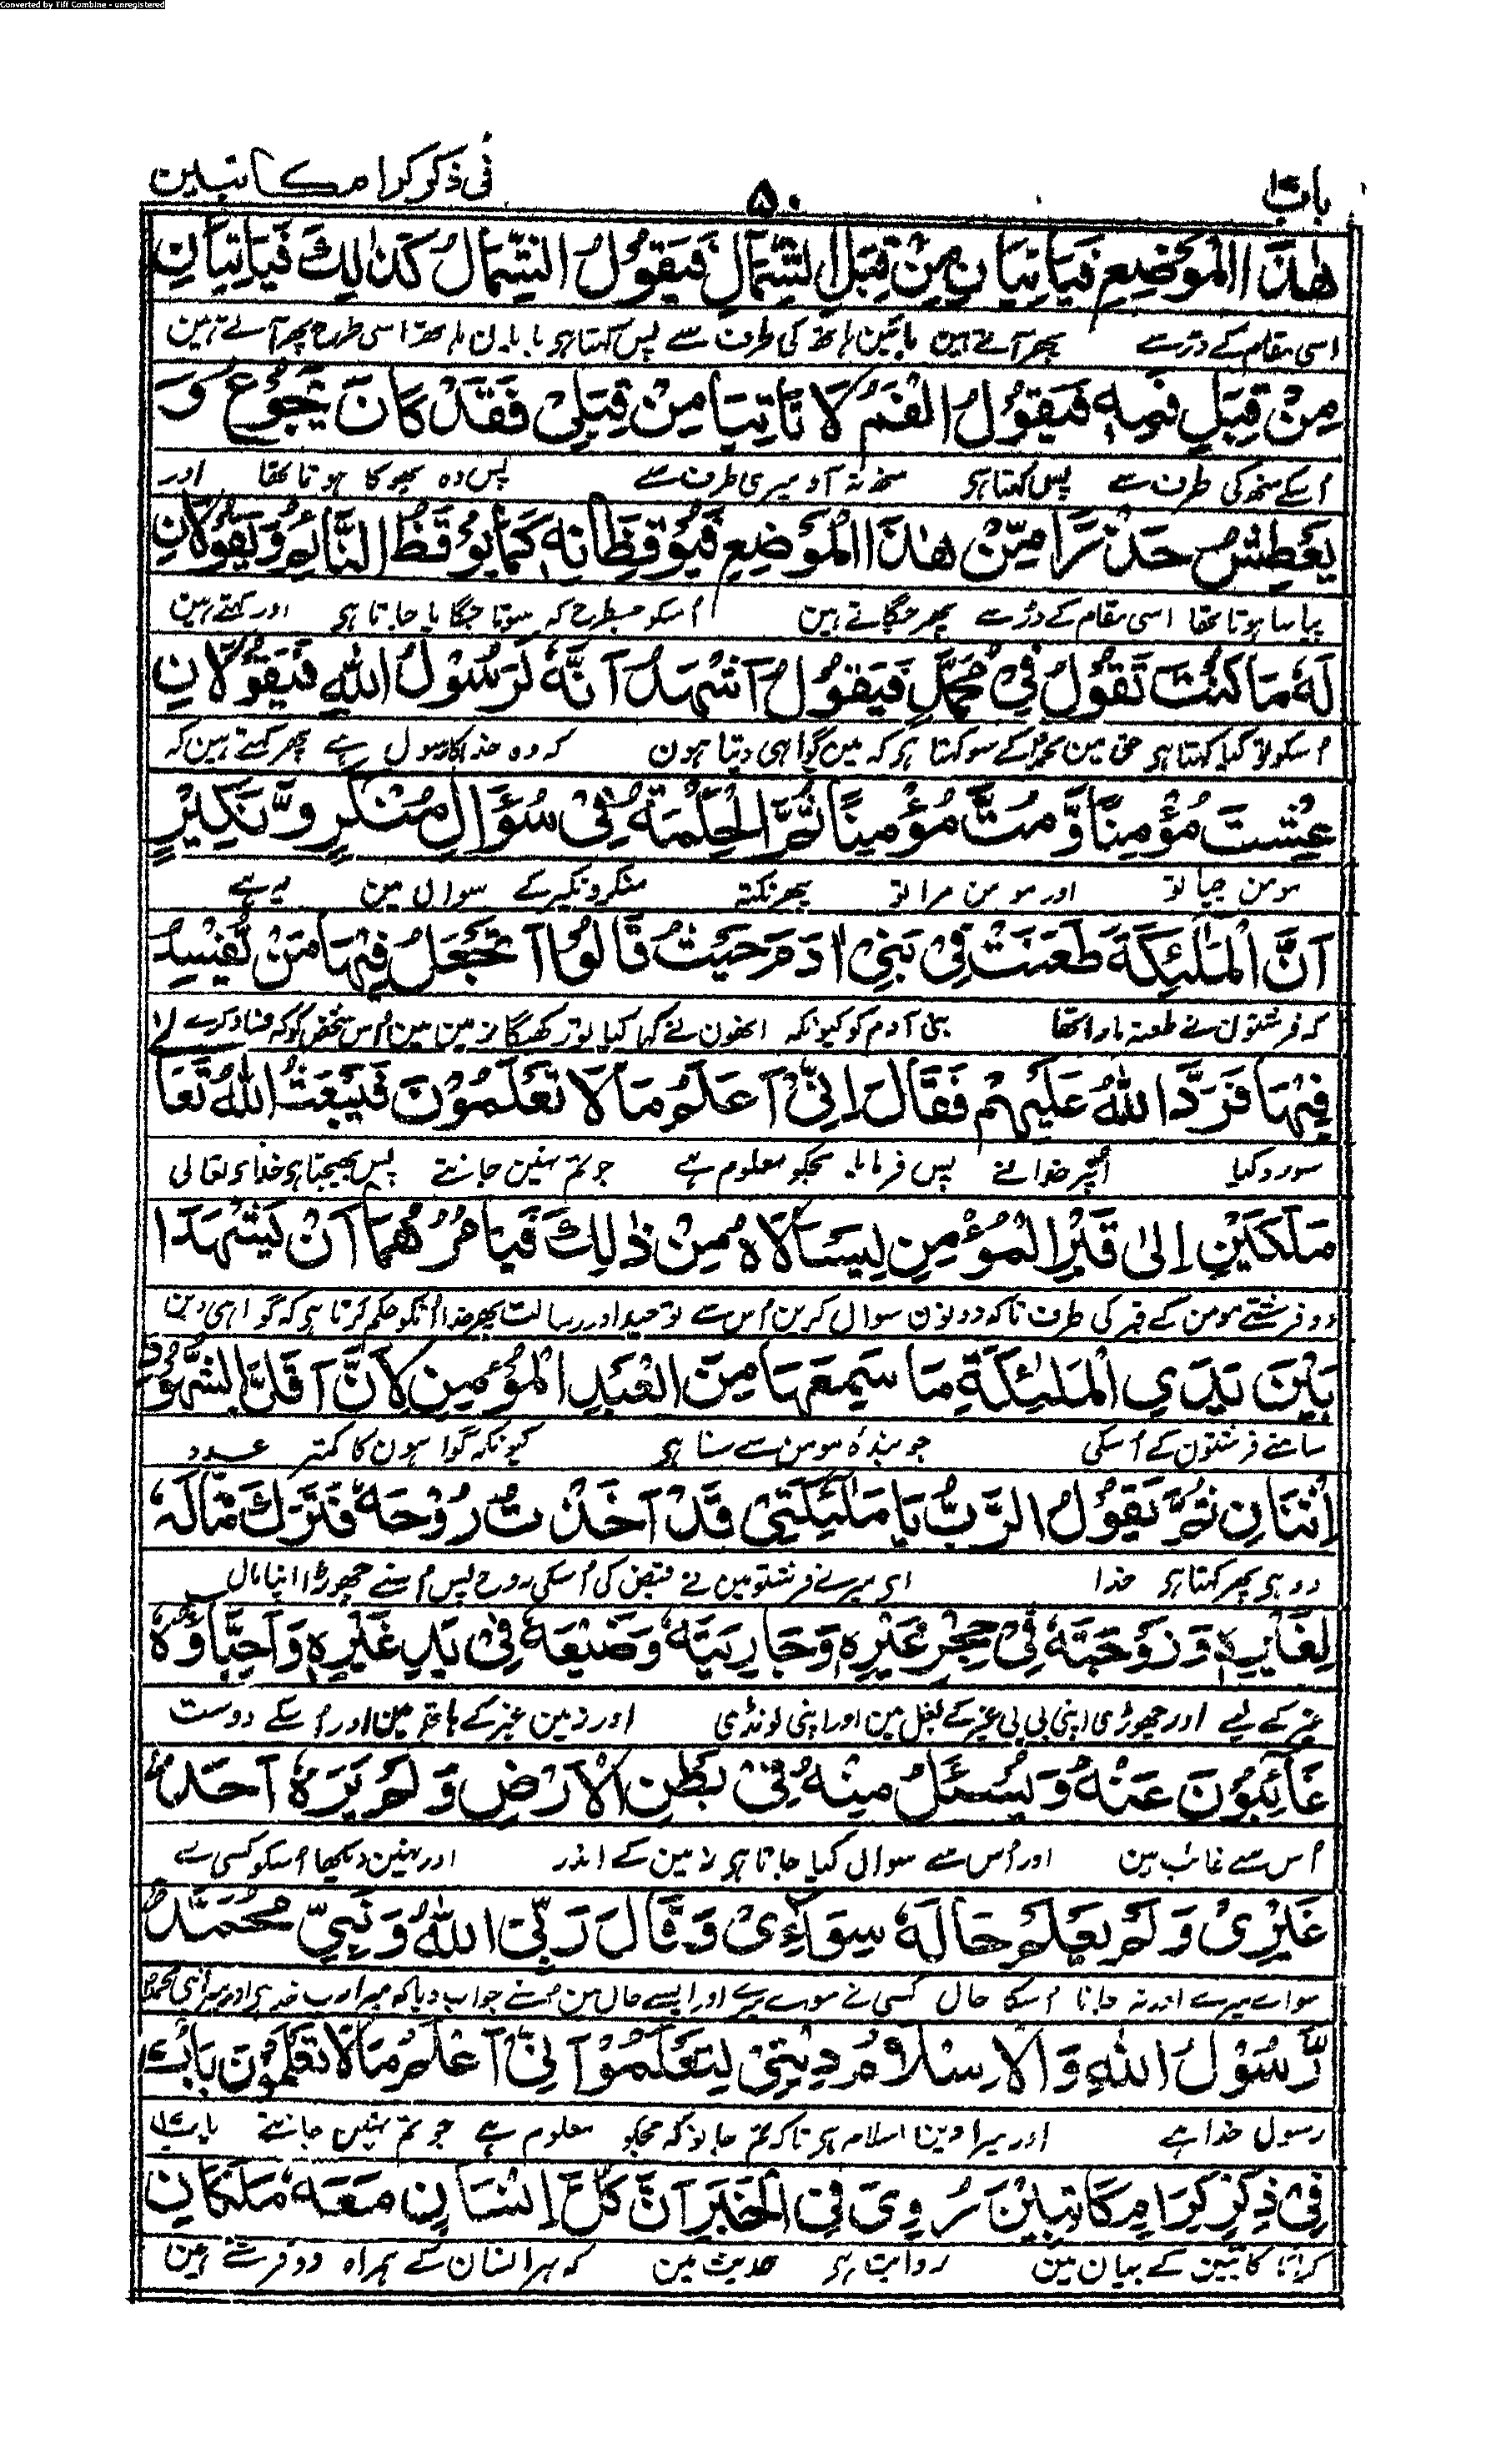 Converted by Tiff Combine - unregistered
باب ۱۶
۵۰
فی ذکر کراما کاتبین
هٰذَا الْمَوْضِعِ فَيَاْتِيَانِ مِنْ قِبَلِ الشِّمَالِ فَيَقُوْلُ الشِّمَالُ كَذٰلِكَ فَيَاْتِيَانِ
اسی مقام کے ڈر سے پھر آتے ہین بائین ہاتھ کی طرف سے پس کہتا ہی بایان ہاتھ اسی طرح پھر آتے ہین
مِنْ قِبَلِ فَمِهٖ فَيَقُوْلُ الْفَمُ لَا تَاْتِيَا مِنْ قِبَلِیْ فَقَدْ كَانَ يَجُوْعُ وَ
اُسکے منھ کی طرف سے پس کہتا ہی منھ نہ آؤ میری طرف سے پس وہ بھوکا ہوتا تھا اور
يَعْطِشُ حَذَرًا مِّنْ هٰذَا الْمَوْضِعِ فَيُوْقِظَانِهٖ كَمَا يُوْقَظُ النَّائِمُ وَيَقُوْلَانِ
پیاسا ہوتا تھا اسی مقام کے ڈر سے پھر جگاتے ہین اُسکو جسطرح کہ سوتا جگایا جاتا ہی اور کہتے ہین
لَهٗ مَا كُنْتَ تَقُوْلُ فِیْ مُحَمَّدٍ فَيَقُوْلُ اَشْهَدُ اَنَّهٗ لَرَسُوْلُ اللّٰهِ فَيَقُوْلَانِ
اُسکو تو کیا کہتا ہی حق مین محمد کے سو کہتا ہی کہ مین گواہی دیتا ہون کہ وہ خدا کا رسول ہے پھر کہتے ہین کہ
عِشْتَ مُؤْمِنًا وَّمُتَّ مُؤْمِنًا ثُمَّ الْحِكْمَةُ فِیْ سُؤَالِ مُنْكَرٍ وَّنَكِيْرٍ
مومن جیا تو اور مومن مرا تو پھر نکتہ منکر و نکیر کے سوال مین یہ ہے
اَنَّ الْمَلٰئِكَةَ طَعَنَتْ فِیْ بَنِیْ اٰدَمَ حَيْثُ قَالُوْا اَتَجْعَلُ فِيْهَا مَنْ يُّفْسِدُ
کہ فرشتون نے طعنہ مارا تھا بنی آدم کو کیونکہ انھون نے کہا کیا تو رکھیگا زمین مین اُس شخص کو کہ فساد کرے
فِيْهَا فَرَدَّ اللّٰهُ عَلَيْهِمْ فَقَالَ اِنِّیْ اَعْلَمُ مَا لَا تَعْلَمُوْنَ فَيَبْعَثُ اللّٰهُ تَعَا
سو رد کیا اُنپر خدا نے پس فرمایا مجکو معلوم ہے جو تم نہین جانتے پس بھیجتا ہی خداے تعالی
مَلَكَيْنِ اِلٰی قَبْرِ الْمُؤْمِنِ لِيَسْاَلَاهُ مِنْ ذٰلِكَ فَيَاْمُرُهُمَا اَنْ يَّشْهَدَا
دو فرشتے مومن کے قبر کی طرف تاکہ دونون سوال کرین اُس سے توحید اور رسالت پھر خدا اُنکو حکم کرتا ہی کہ گواہی دین
بَيْنَ يَدَیِ الْمَلٰئِكَةِ مَا سَمِعَهَا مِنَ الْعَبْدِ الْمُؤْمِنِ لِاَنَّ اَقَلَّ الشُّهُوْدِ
سامنے فرشتون کے اُسکی جو بندہ مومن سے سنا ہی کیونکہ گواہون کا کمتر عدد
اِثْنَانِ ثُمَّ يَقُوْلُ الرَّبُّ يَا مَلٰئِكَتِیْ قَدْ اَخَذْتُ رُوْحَهٗ فَتَرَكَ مَالَهٗ
دو ہی پھر کہتا ہی خدا ای میرے فرشتو مین نے قبض کی اُسکی روح پس اُسنے چھوڑا اپنا مال
لِغَيْرِهٖ وَزَوْجَتَهٗ فِیْ حِجْرِ غَيْرِهٖ وَجَارِيَتَهٗ وَضَيْعَهٗ فِیْ يَدِ غَيْرِهٖ وَاَحِبَّاؤُهٗ
غیر کے لیے اور چھوڑی اپنی بی بی غیر کے بغل مین اور اپنی لونڈی اور زمین غیر کے ہاتھ مین اور اُسکے دوست
غَائِبُوْنَ عَنْهُ وَيُسْئَلُ مِنْهُ فِیْ بَطْنِ الْاَرْضِ وَلَمْ يَرَهٗ اَحَدٌ
اُس سے غائب ہین اور اُس سے سوال کیا جاتا ہی زمین کے اندر اور نہین دیکھا اُسکو کسی نے
غَيْرِیْ وَلَمْ يَعْلَمْ حَالَهٗ سِوَآءِیْ وَقَالَ رَبِّیَ اللّٰهُ وَنَبِیِّ مُحَمَّدٌ
سواے میرے اور نہ جانا اُسکا حال کسی نے سوے میرے اور ایسے حال مین اُسنے جواب دیا کہ میرا رب خدا ہی اور میرا نبی محمد
رَّسُوْلُ اللّٰهِ وَالْاِسْلَامُ دِيْنِیْ لِتَعْلَمُوْا اَنِّیْ اَعْلَمُ مَا لَا تَعْلَمُوْنَ بَابُ ۱۶
رسول خدا ہے اور میرا دین اسلام ہی تاکہ تم جانو کہ مجکو معلوم ہے جو تم نہین جانتے باب ۱۶
فِیْ ذِكْرِ كِرَامًا كَاتِبِيْنَ رُوِیَ فِی الْخَبَرِ اَنَّ كُلَّ اِنْسَانٍ مَعَهٗ مَلَكَانِ
کراماً کاتبین کے بیان مین روایت ہی حدیث مین کہ ہر انسان کے ہمراہ دو فرشتے ہین